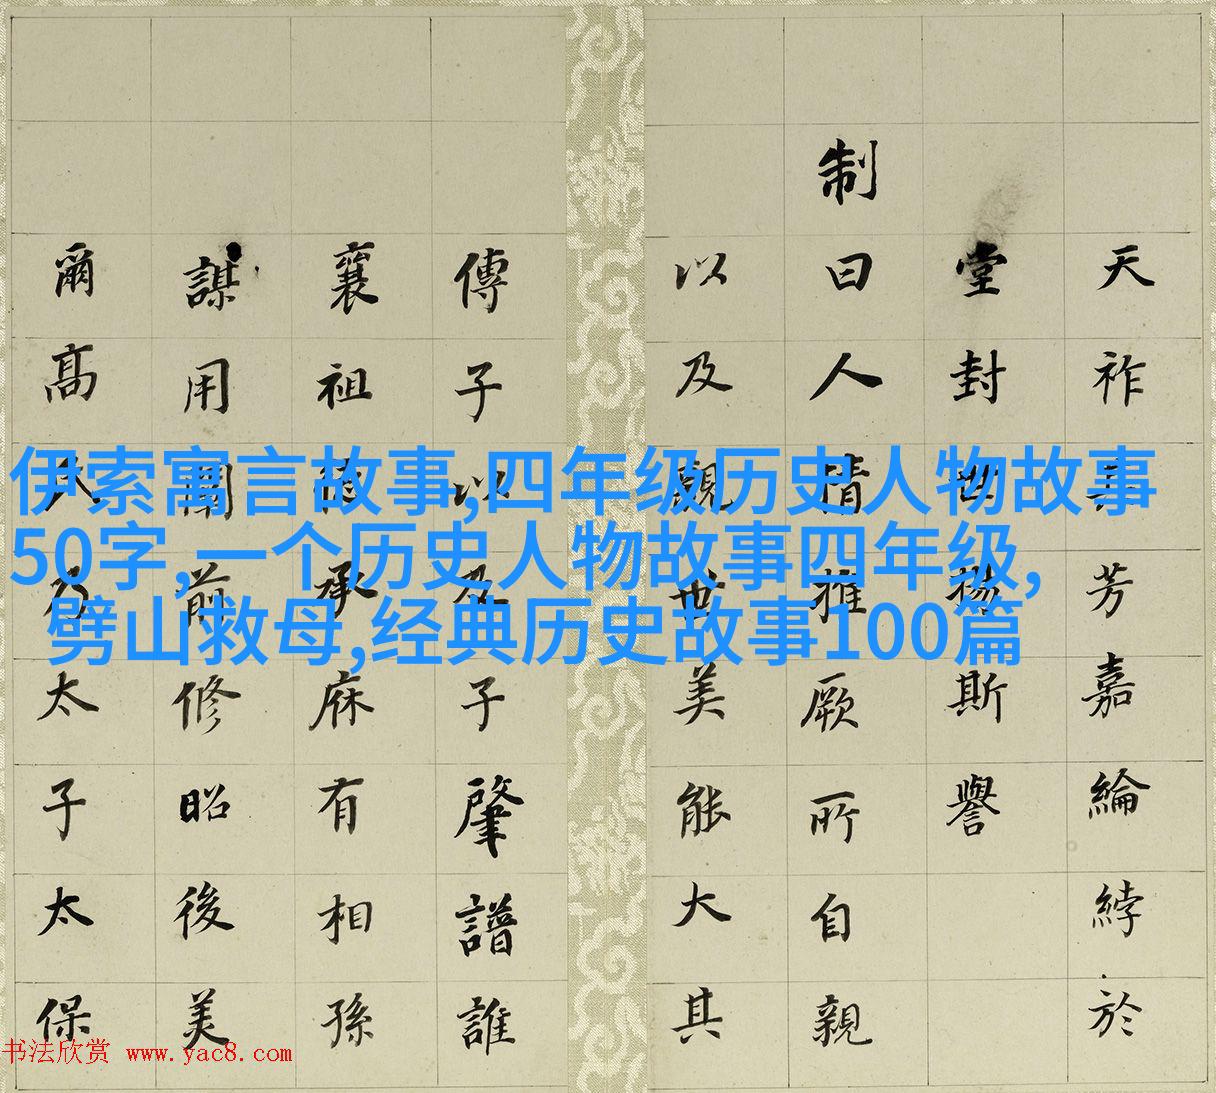 伊索寓言故事,四年级历史人物故事
50字,一个历史人物故事四年级,
劈山救母,经典历史故事100篇
天祚芳嘉綸綍於
堂封世揚斯譽
制曰人情推厥所自親
以及觀世美能大其
傳子以及子肇譜誰
襄祖德承庥有相孫
謀用開前修昭後美
爾高大乃太子太保
书法欣赏 www.yac8.com